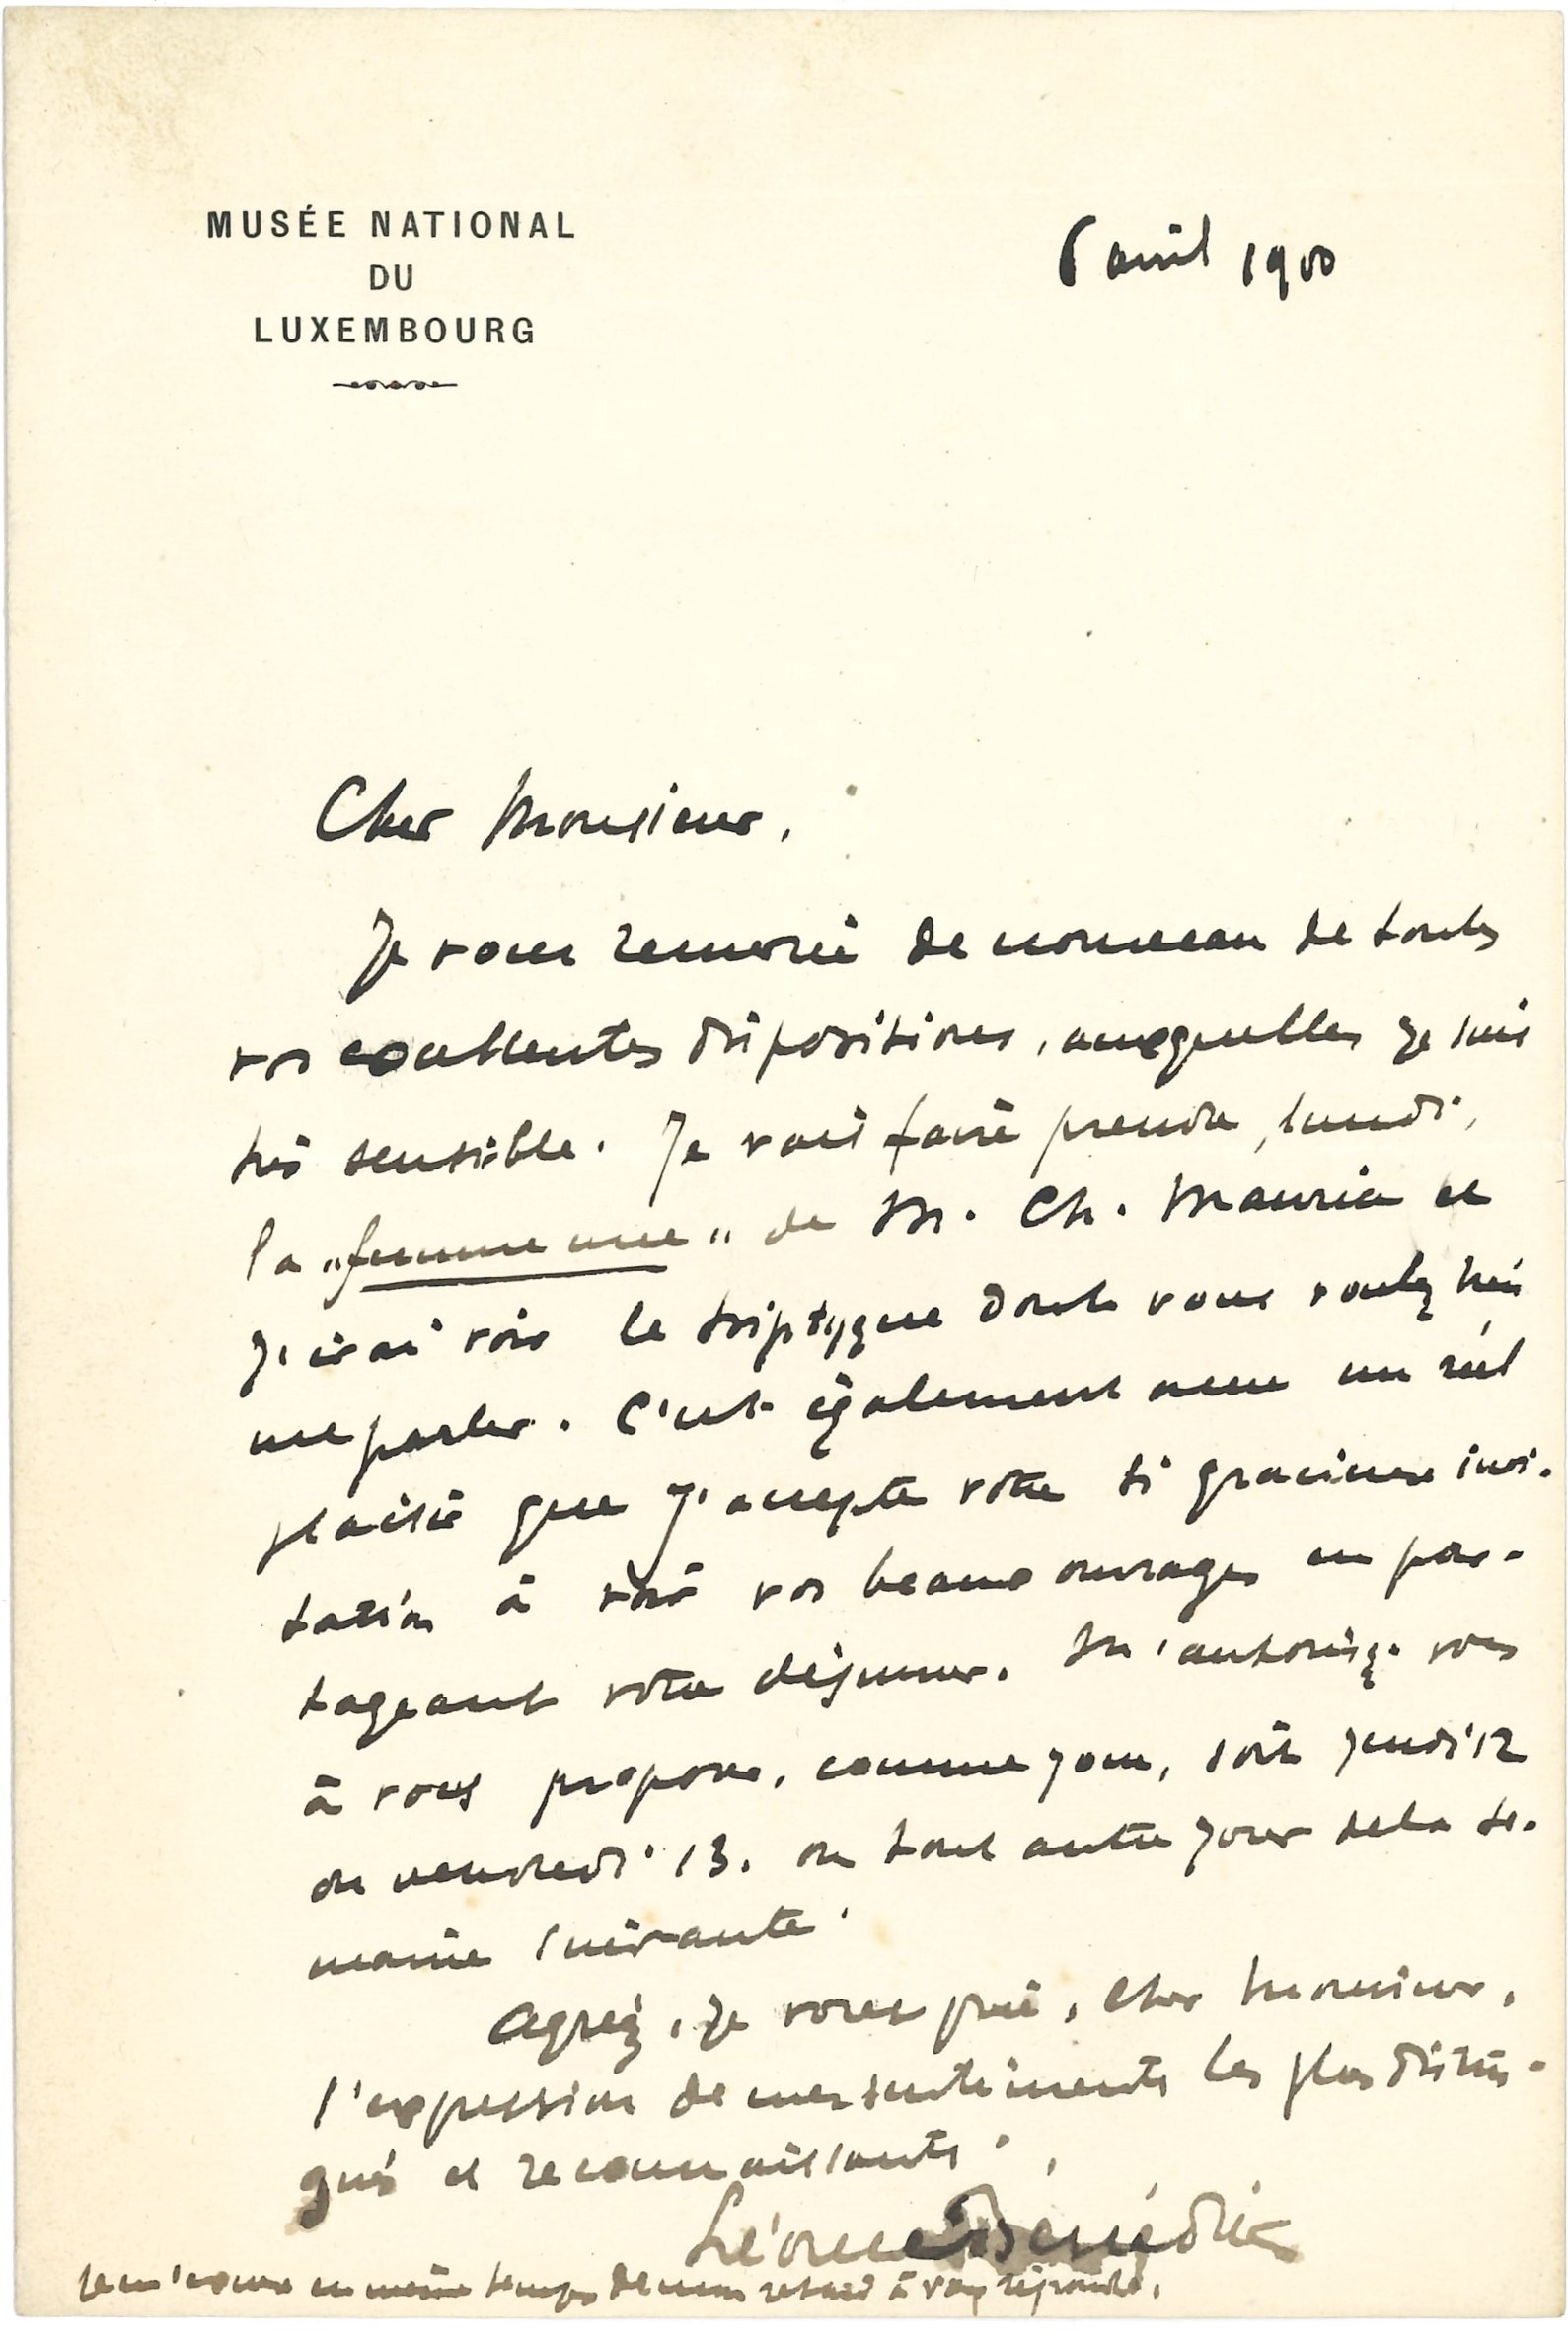 MUSÉE NATIONAL
DU
LUXEMBOURG
6 avril 1900
Cher Monsieur,
Je vous remercie de nouveau de toutes
vos excellentes dispositions, auxquelles je suis
très sensible. Je vais faire prendre, lundi,
la "femme nue" de M. Ch. Maurin et
j'irai voir le triptyque dont vous voulez bien
me parler. C'est également avec un réel
plaisir que j'accepte votre si gracieuse invi-
tation à voir vos beaux ouvrages en par-
tageant votre déjeuner. M'autorisez-vous
à vous proposer, comme jour, soit jeudi 12
ou vendredi 13, ou tout autre jour de la se-
maine suivante.
Agréez, je vous prie, cher Monsieur,
l'expression de mes sentiments les plus distin-
gués et reconnaissants.
Léonce Bénédite
Je m'excuse en même temps de mon retard à vous répondre.